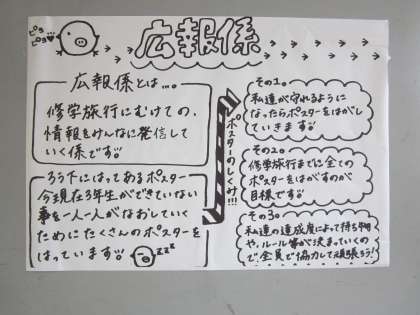 ピヨ
ピヨ
広報係
広報係とは…。
修学旅行にむけての、
情報をみんなに発信して
いく係です!!
ろう下にはってあるポスター
今現在3年生ができていない
事を一人一人がなおしていく
ためにたくさんのポスターを
はっています!!
zzz
ポスターのしくみ!!!
その1。
私達が守れるように
なったらポスターをはがし
ていきます!!
その2。
修学旅行までに全ての
ポスターをはがすのが
目標です!!
その3。
私達の達成度によって持ち物
や、ルール等が決まっていくの
で全員で協力して頑張ろう!